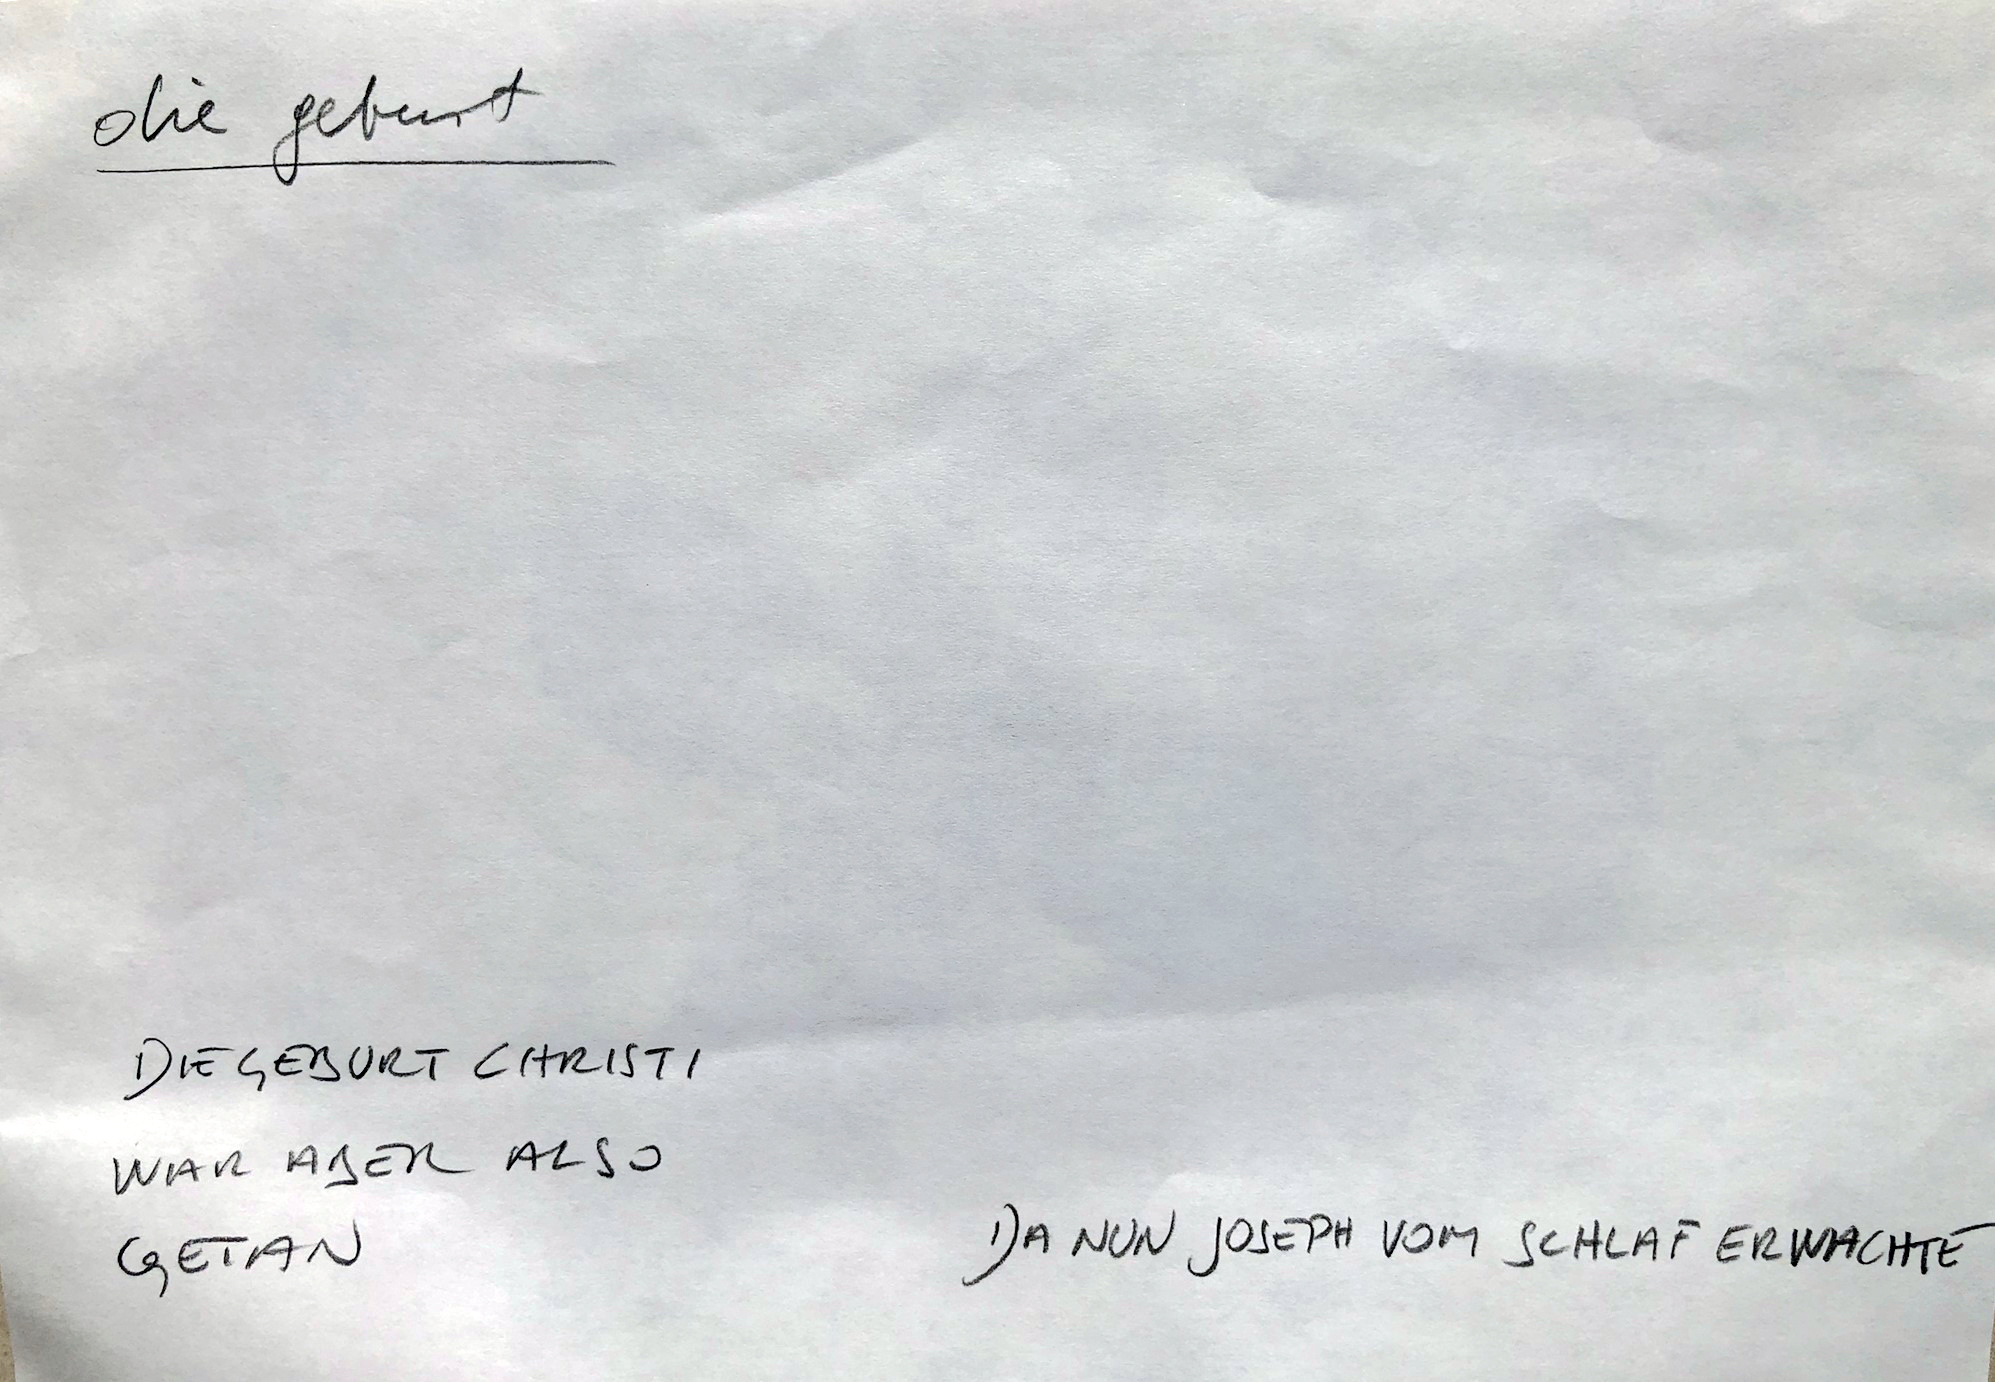 die geburt
DIE GEBURT CHRISTI
WAR ABER ALSO
GETAN
DA NUN JOSEPH VOM SCHLAF ERWACHTE